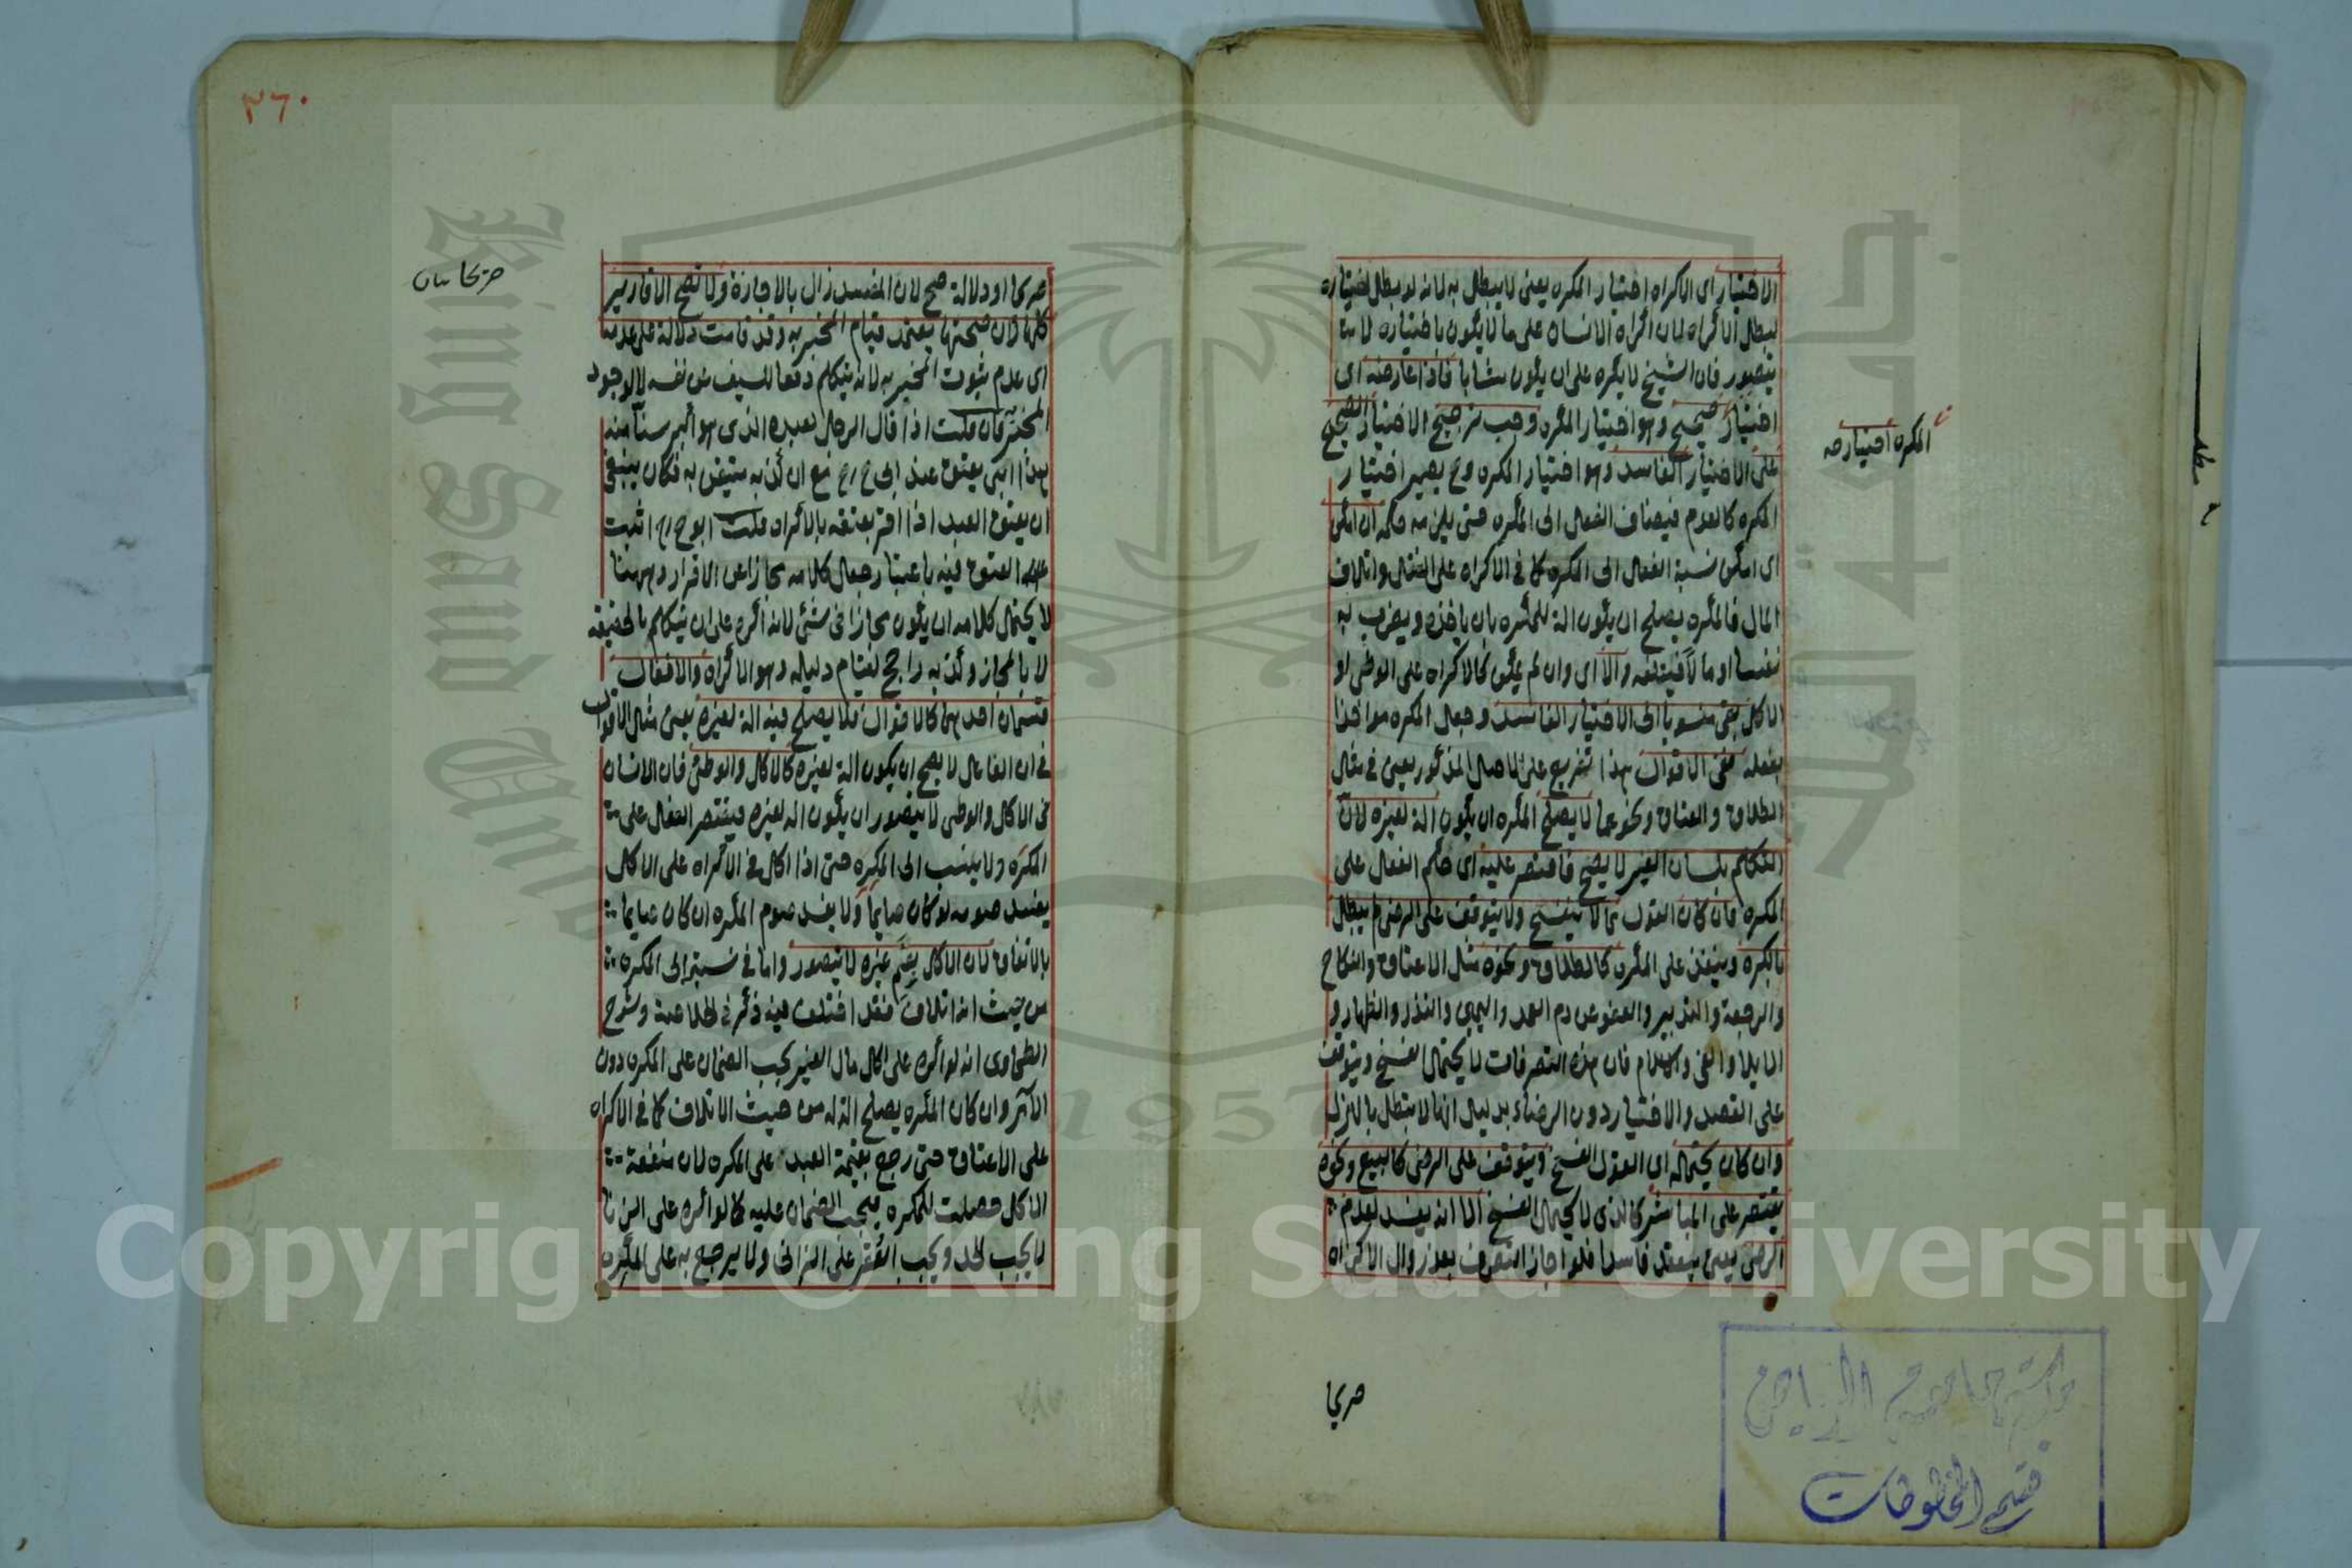 الاختيار اى الاكراه اختيار المكره يعنى لا يبطل به لانه لو بطل اختياره
لبطل الاكراه لان اكراه الانسان على ما لا يكون باختياره لا
يتصور فان الشيخ لا يكره على ان يكون شابا فاذا عارضه اى
اختيار صحيح وهو اختيار المكره وجب ترجيح الاختيار الصحيح
على الاختيار الفاسد وهو اختيار المكره وح يصير اختيار
المكره كالعدم فيضاف الفعل الى المكره حتى يلزمه حكمه ان امكن
اى امكن نسبة الفعل الى المكره كما فى الاكراه على القتل واتلاف
المال فالمكره يصلح ان يكون الة للمكره بان ياخذه ويضرب به
نفسا او مالا فيتلفه والا اى وان لم يمكن كالاكراه على الوطى او
الاكل بقى منسوبا الى الاختيار الفاسد وجعل المكره مواخذا
بفعله ففى الاقوال هذا تفريع على الاصل المذكور يعنى فى مثال
الطلاق والعتاق ونحوهما لا يصلح المكره ان يكون الة لغيره لان
التكلم بلسان الغير لا يصح فاقتصر عليه اى حكم الفعل على
المكره فان كان القول مما لا ينفسخ ولا يتوقف على الرضى لم يبطل
بالكره وينفذ على المكره كالطلاق ونحوه مثل الاعتاق والنكاح
والرجعة والتدبير والعفو عن دم العمد واليمين والنذر والظهار و
الايلا والفئ والاسلام فان هذه التصرفات لا يحتمل الفسخ ويتوقف
على القصد والاختيار دون الرضاء بدليل انها لا تبطل بالهزل
وان كان يحتمله اى القول الفسخ ويتوقف على الرضى كالبيع ونحوه
يقتصر على المباشر كالذى لا يحتمل الفسخ الا انه يفسد لعدم
الرضى يعنى ينعقد فاسدا فلو اجاز التصرف بعد زوال الاكراه
صريحا
المكره اختيار صح
مكتبة جامعة الرياض
قسم المخطوطات
٣٦٠
صريحا او دلالة صح لان المفسد زال بالاجازة ولا تصح الاقارير
كلها لان صحتها يعتمد قيام المخبر به وقد قامت دلالة على عدمه
اى عدم ثبوت المخبر به لانه يتكلم دفعا للسيف عن نفسه لا لوجود
المخبر فان قلت اذا قال الرجل لعبده الذى هو اكبر سنا منه
هذا ابنى يعتق عند ابى ح رح مع ان كذبه متيقن به فكان ينبغى
ان يعتق العبد اذا اقر بعتقه بالاكراه قلت ابو ح رح اثبت
العتق فيه باعتبار جعل كلامه مجازا عن الاقرار وههنا
لا يحتمل كلامه ان يكون مجازا فى شئ لانه اكره على ان يتكلم بالحقيقة
لا بالمجاز وكذبه راجح لقيام دليله وهو الاكراه والافعال
قسمان احدهما كالاقوال فلا يصلح فيه الة لغيره يعنى مثل الاقوال
فى ان الفاعل لا يصح ان يكون الة لغيره كالاكل والوطئ فان الانسان
فى الاكل والوطى لا يتصور ان يكون الة لغيره فيقتصر الفعل على
المكره ولا ينسب الى المكره حتى اذا اكل فى الاكراه على الاكل
يفسد صومه لو كان صايما ولا يفسد صوم المكره ان كان صايما
بالاتفاق لان الاكل بفم غيره لا يتصور واما فى نسبته الى المكره
من حيث انه اتلاف فقد اختلف فيه ذكر فى الخلاصة وشرح
الطحاوى انه لو اكره على اكل مال الغير يجب الضمان على المكره دون
الآمر وان كان المكره يصلح الة له من حيث الاتلاف كما فى الاكراه
على الاعتاق حتى رجع بقيمة العبد على المكره لان منفعة
الاكل حصلت للمكره فيجب الضمان عليه كما لو اكره على الزنا
لا يجب الحد ويجب العقر على الزانى ولا يرجع به على المكره
Copyright © King Saud University
1957